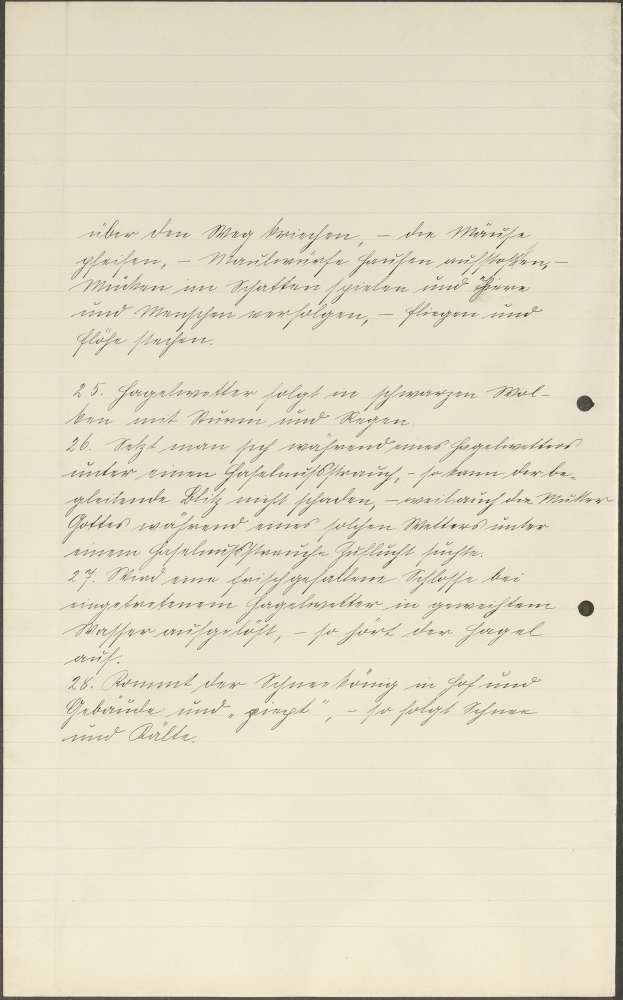 über den Weg kriechen, – die Mäuse
pfeifen, – Maulwürfe Haufen aufstoßen, –
Mücken im Schatten spielen und Tiere
und Menschen verfolgen, – Fliegen und
Flöhe stechen.
25. Hagelwetter folgt in schwarzen Wol-
ken mit Sturm und Regen.
26. Setzt man sich während eines Hagelwetters
unter einen Haselnußstrauch, – so kann der be-
gleitende Blitz nicht schaden, – weil auch die Mutter
Gottes während eines solchen Wetters unter
einem Haselnußstrauche Zuflucht suchte.
27. Wird eine frischgefallene Schlosse bei
eingetretenem Hagelwetter in geweihtem
Wasser aufgelöst, – so hört der Hagel
auf.
28. Kommt der Schneekönig in Hof und
Gebäude und „piept", – so folgt Schnee
und Kälte.